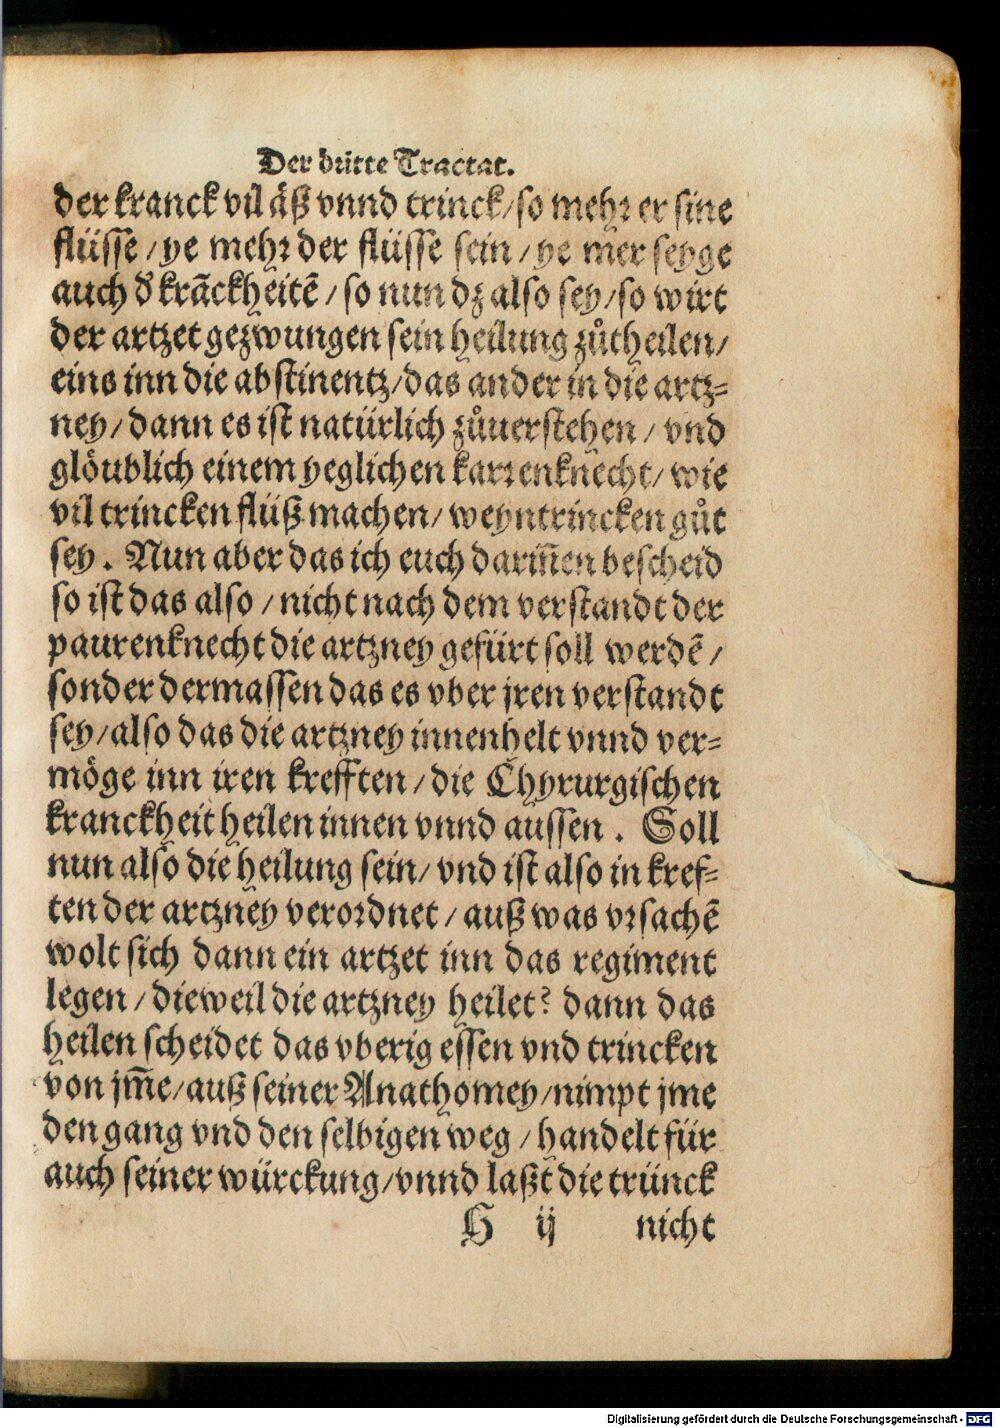 Der dritte Tractat.
der kranck vil äß vnnd trinck/so mehr er sine
flüsse/ye mehr der flüsse sein/ye mer seyge
auch d' krãckheitẽ/so nun dz also sey/so wirt
der artzet gezwungen sein heilung zůtheilen/
eins inn die abstinentz/das ander in die artz=
ney/dann es ist natürlich zůuerstehen/vnd
glöublich einem yeglichen karrenknecht/wie
vil trincken flüß machen/weyntrincken gůt
sey. Nun aber das ich euch darin̄en bescheid
so ist das also/nicht nach dem verstandt der
paurenknecht die artzney gefürt soll werdẽ/
sonder dermassen das es vber jren verstandt
sey/also das die artzney innenhelt vnnd ver=
möge inn iren krefften/die Chyrurgischen
kranckheit heilen innen vnnd aussen. Soll
nun also die heilung sein/vnd ist also in kref=
ten der artzney verordnet/auß was vrsachẽ
wolt sich dann ein artzet inn das regiment
legen/dieweil die artzney heilet? dann das
heilen scheidet das vberig essen vnd trincken
von jm̄e/auß seiner Anathomey/nimpt jme
den gang vnd den selbigen weg/handelt für
auch seiner würckung/vnnd laßt die trünck
H ij nicht
Digitalisierung gefördert durch die Deutsche Forschungsgemeinschaft - DFG